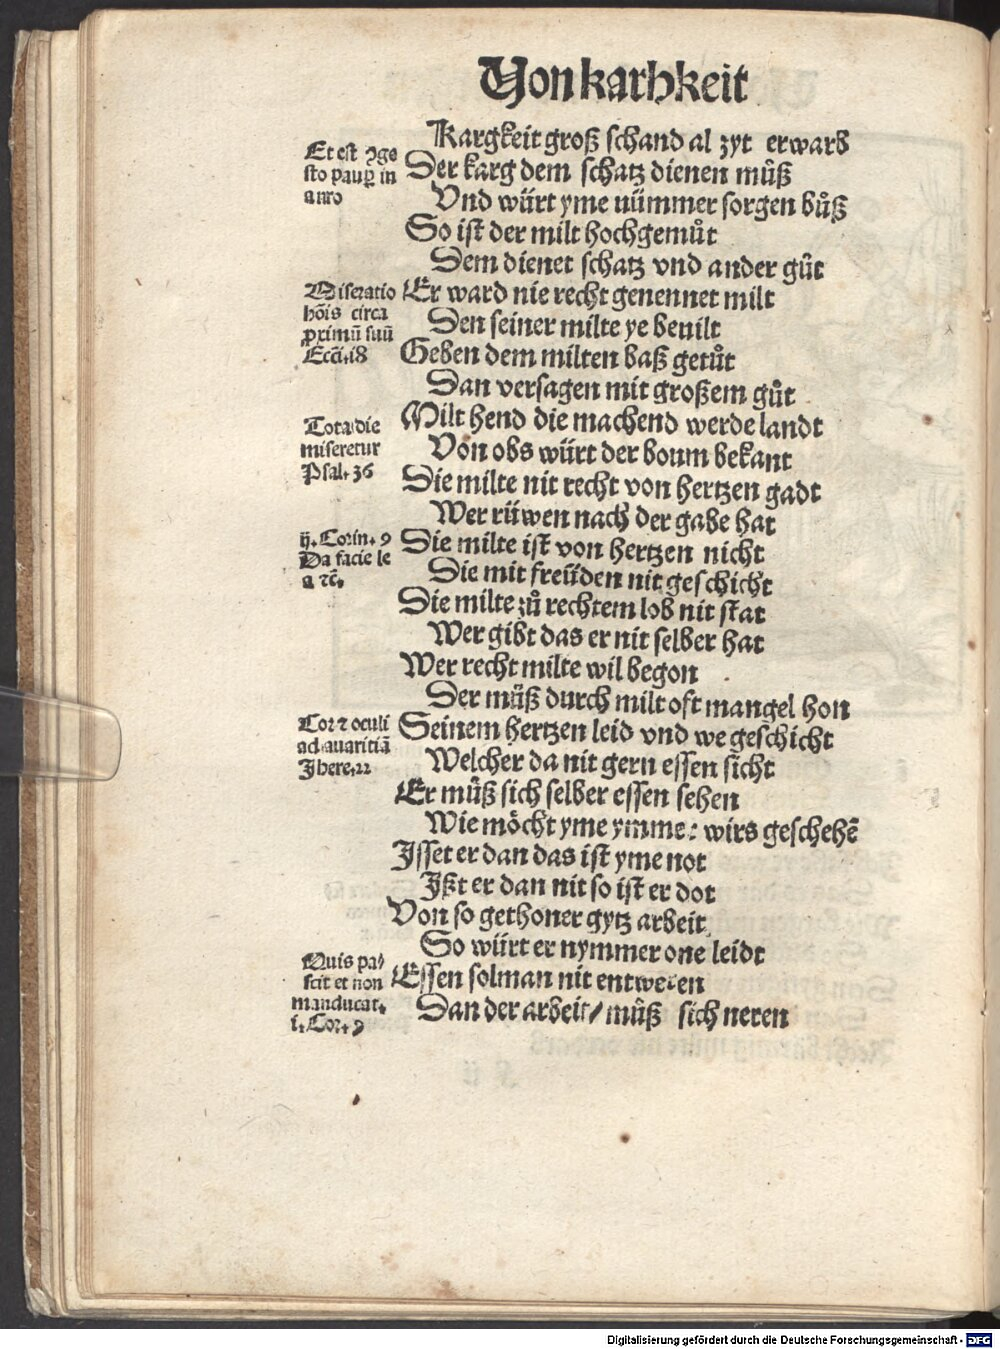 Von karhkeit
Kargkeit groß schand al zyt erwarb
Et est ꝯge
sto paup̲ in
auro
Der karg dem schatz dienen muͦß
Vnd würt yme nümmer sorgen buͦß
So ist der milt hochgemuͦt
Dem dienet schatz vnd ander guͦt
Miseratio
hōis circa
ꝓximū suū
Ecci. 18
Er ward nie recht genennet milt
Den seiner milte ye beuilt
Geben dem milten baß getuͦt
Dan versagen mit großem guͦt
Tota die
miseretur
Psal. 36
Milt hend die machend werde landt
Von obs würt der boum bekant
Die milte nit recht von hertzen gadt
Wer rüwen nach der gabe hat
ij. Corin. 9
Da facie le
a ꝛc̄.
Die milte ist von hertzen nicht
Die mit freüden nit geschicht
Die milte zuͦ rechtem lob nit stat
Wer gibt das er nit selber hat
Wer recht milte wil begon
Der muͦß durch milt oft mangel hon
Cor ⁊ oculi
ad auaritiā
Jhere. 22
Seinem hertzen leid vnd we geschicht
Welcher da nit gern essen sicht
Er muͦß sich selber essen sehen
Wie möcht yme ymmer wirs geschehē
Jsset er dan das ist yme not
Jßt er dan nit so ist er dot
Von so gethoner gytz arbeit
So würt er nymmer one leidt
Quis pa⸗
scit et non
manducat.
i. Cor. 9
Essen sol man nit entweren
Dan der arbeit / muͦß sich neren
Digitalisierung gefördert durch die Deutsche Forschungsgemeinschaft - DFG